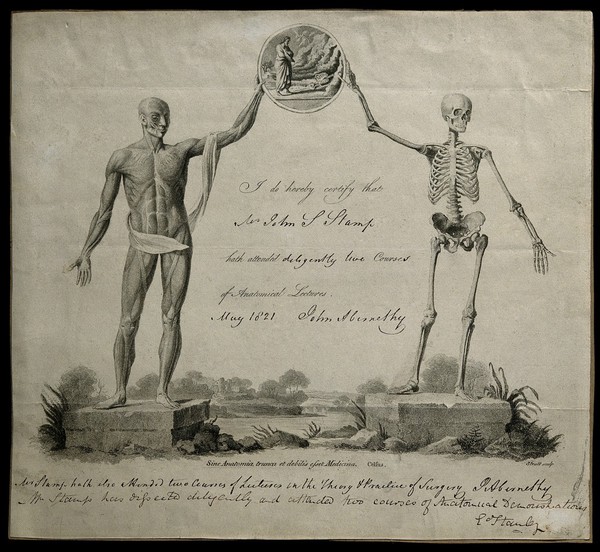 I do hereby certify that
Mr John S Stamp
hath attended diligently two Courses
of Anatomical Lectures.
May 1821 John Abernethy
Sine Anatomia, trunca et debilis esset Medicina. 
Mr Stamp hath also attended two Courses of Lectures in the Theory & Practice of Surgery J Abernethy
Mr Stamp has dissected diligently and attended two courses of Anatomical Demonstrations
Ed Stanley